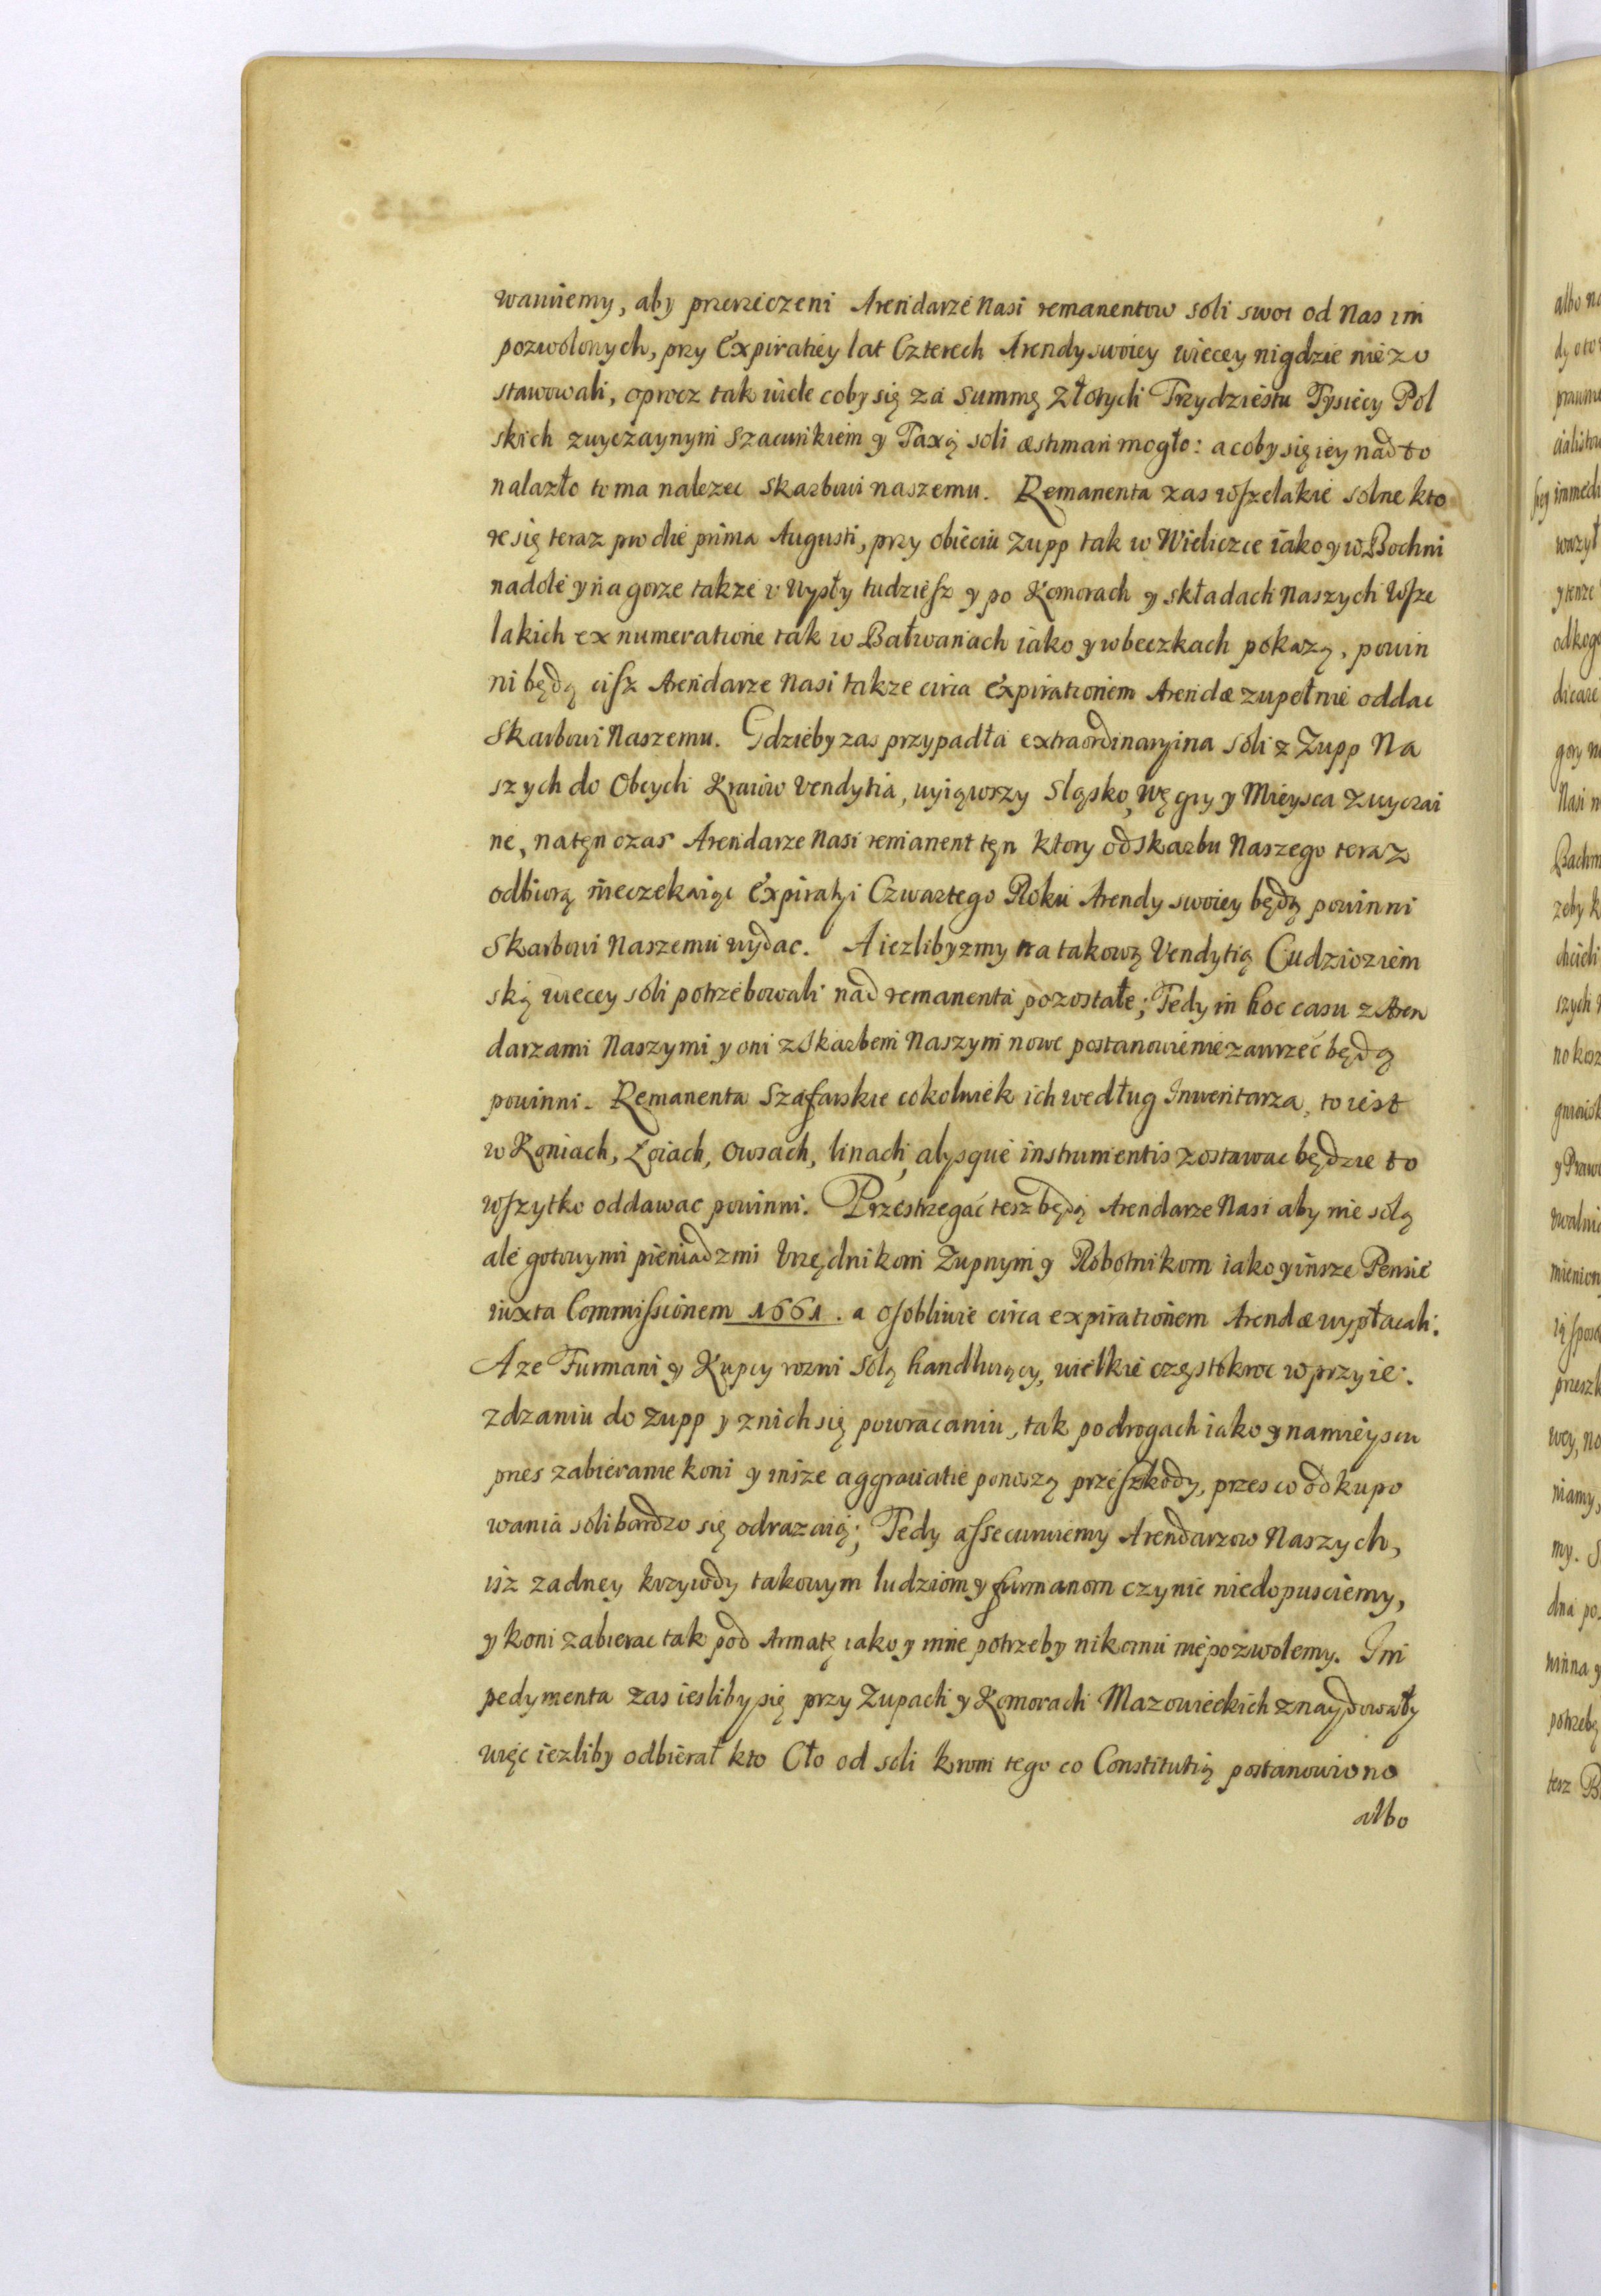 wamiemy, aby przerzeczeni Arendarze Nasi remanentow soli swoi od Nas im
pozwolonych, przy Expiratiey lat Czterech Arendy swoiey wiecey nigdzie nie zo
stawowali, oprocz tak wiele coby się za Summę Złotych Trzydziestu Tysiecy Pol
skich zwyczaynym Szacunkiem y Taxą soli æstimari mogło: a coby się iey nadto
nalazło to ma nalezec Skarbowi naszemu. Remanenta zas wszelakie solne kto
re się teraz pro die prima Augusti, przy obieciu Zupp tak w Wieliczce iako y w Bochni
nadole y na gorze takze v Wysły tudziesz y po Komorach y składach Naszych Wsze
lakich ex numeratione tak w Bałwanach iako y wbeczkach pokazą, powin
ni będą cisz Arendarze Nasi takze circa Expirationem Arendæ zupełnie oddac
Skarbowi Naszemu. Gdzieby zas przypadła extraordinaryina soli z Zupp Na
szych do Obcych Kraiow Vendytia, wyiąwszy Sląsko, Węgry y Mieysca zwyczai
ne, natęn czas Arendarze Nasi remanent tęn ktory od Skarbu Naszego teraz
odbiorą nieczekaiąc Expiratyi Czwartego Roku Arendy swoiey będą powinni
Skarbowi Naszemu wydac. A iezlibyzmy na takową Vendytią Cudzioziem
ską wiecey soli potrzebowali nad remanenta pozostałe; Tedy in hoc casu z Aren
darzami Naszymi y oni z Skarbem Naszym nowe postanowienie zawrzeć będą
powinni. Remanenta Szafarskie cokolwiek ich według Inwentarza, to iest
w Koniach, Łoiach, Owsach, linach, alysque instrumentis zostawac będzie to
wszytko oddawac powinni. Przestrzegać tesz będą Arendarze Nasi aby nie solą
ale gotowymi pieniadzmi Vrzędnikom Zupnym y Robotnikom iako y insze Pensie
iuxta Commissionem 1661. a osobliwie circa expirationem Arendæ wypłacali.
A ze Furmani y Kupcy rozni solą handluiący, wielkie częstokroc w przyie:
zdzaniu do Zupp y z nich się powracaniu, tak po drogach iako y namieyscu
przes zabieranie koni y insze aggravatie ponoszą przeszkody, przes co od kupo
wania soli bardzo się odrazaią; Tedy assecuruiemy Arendarzow Naszych,
isz zadney krzywdy takowym ludziom y furmanom czynic niedopusciemy,
y koni zabierac tak pod Armatę iako y inne potrzeby nikomu niepozwolemy. Im
pedymenta zas iesliby się przy Zupach y Komorach Mazowieckich znaydowały
więc iezliby odbierał kto Cło od soli krom tego co Constitutią postanowiono
albo